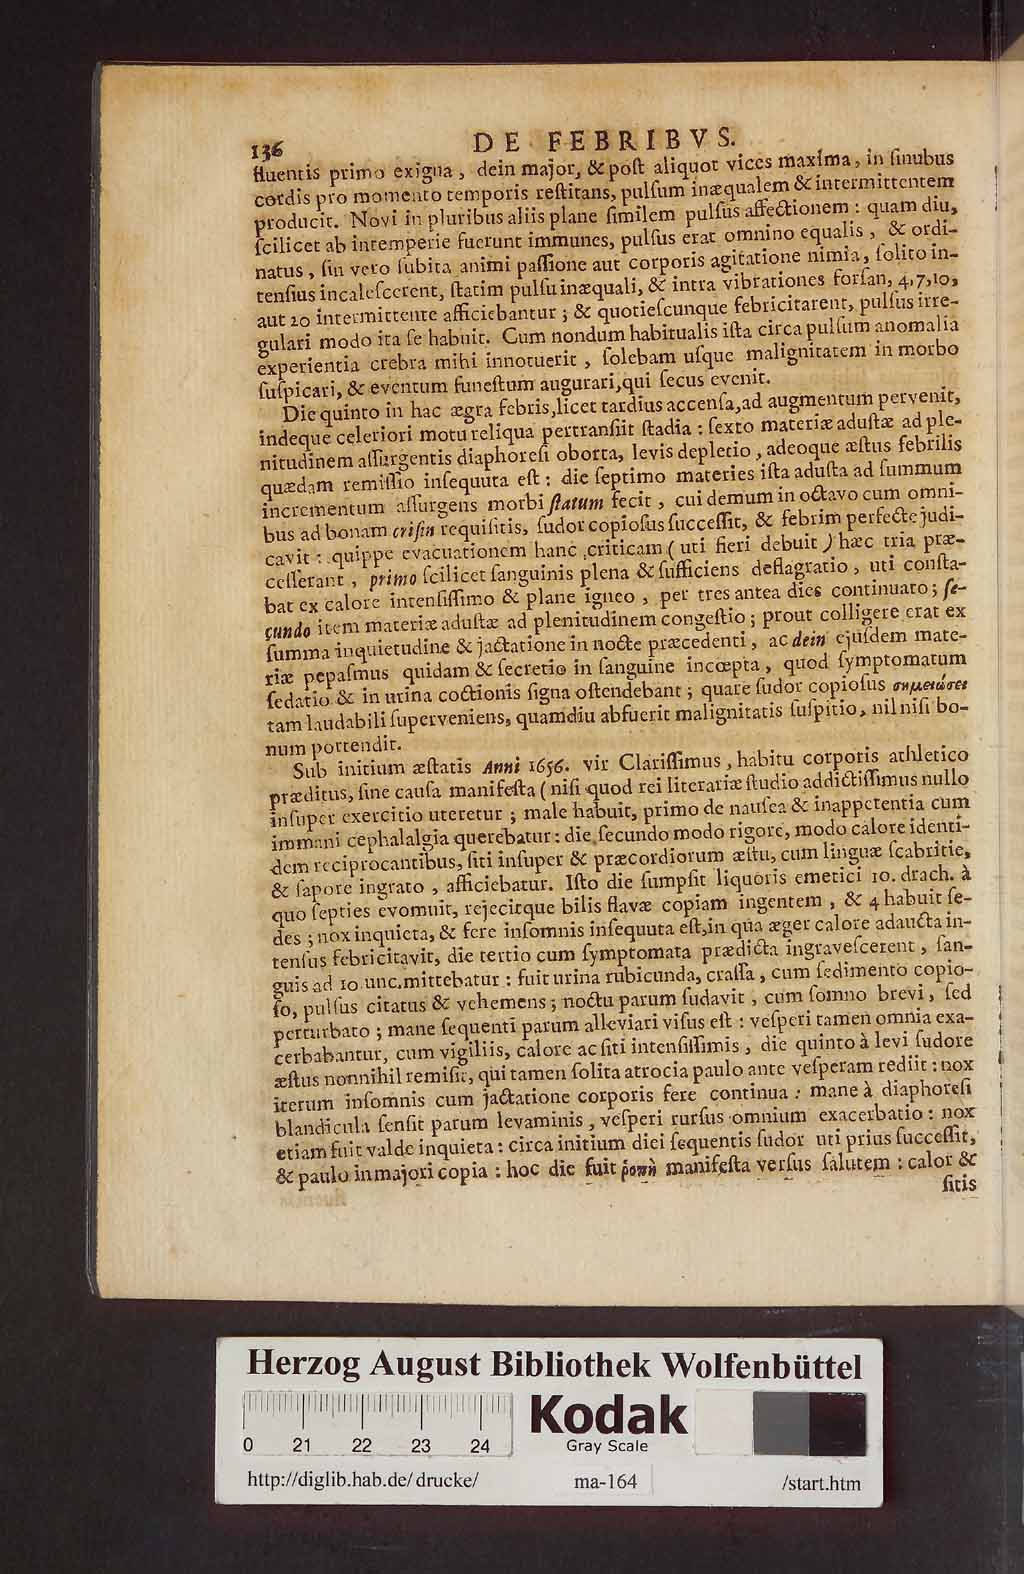 136
DE FEBRIBVS.
fluentis primo exigua, dein major, & poſt aliquot vices maxima, in ſinubus
cordis pro momento temporis reſtitans, pulſum inæqualem & intermittentem
producit. Novi in pluribus aliis plane ſimilem pulſus affectionem : quam diu,
ſcilicet ab intemperie fuerunt immunes, pulſus erat omnino equalis, & ordi-
natus, ſin vero ſubita animi paſſione aut corporis agitatione nimia, ſolito in-
tenſius incaleſcerent, ſtatim pulſu inæquali, & intra vibrationes forſan, 4, 7, 10,
aut 20 intermittente afficiebantur ; & quotieſcunque febricitarent, pulſus irre-
gulari modo ita ſe habuit. Cum nondum habitualis iſta circa pulſum anomalia
experientia crebra mihi innotuerit, ſolebam uſque malignitatem in morbo
ſuſpicari, & eventum funeſtum augurari, qui ſecus evenit.
Die quinto in hac ægra febris, licet tardius accenſa, ad augmentum pervenit,
indeque celeriori motu reliqua pertranſiit ſtadia : ſexto materiæ aduſtæ ad ple-
nitudinem aſſurgentis diaphoreſi oborta, levis depletio, adeoque æſtus febrilis
quædam remiſſio inſequuta eſt : die ſeptimo materies iſta aduſta ad ſummum
incrementum aſſurgens morbi ſtatum fecit, cui demum in octavo cum omni-
bus ad bonam criſin requiſitis, ſudor copioſus ſucceſſit, & febrim perfecte judi-
cavit : quippe evacuationem hanc criticam ( uti fieri debuit ) hæc tria præ-
ceſſerant, primo ſcilicet ſanguinis plena & ſufficiens deflagratio, uti conſta-
bat ex calore intenſiſſimo & plane igneo, per tres antea dies continuato ; ſe-
cundo item materiæ aduſtæ ad plenitudinem congeſtio ; prout colligere erat ex
ſumma inquietudine & jactatione in nocte præcedenti, ac dein ejuſdem mate-
riæ pepaſmus quidam & ſecretio in ſanguine incœpta, quod ſymptomatum
ſedatio & in urina coctionis ſigna oſtendebant ; quare ſudor copioſus σημειώσει
tam laudabili ſuperveniens, quamdiu abfuerit malignitatis ſuſpitio, nil niſi bo-
num portendit.
Sub initium æſtatis Anni 1656. vir Clariſſimus, habitu corporis athletico
præditus, ſine cauſa manifeſta ( niſi quod rei literariæ ſtudio addictiſſimus nullo
inſuper exercitio uteretur ; male habuit, primo de nauſea & inappetentia cum
immani cephalalgia querebatur : die ſecundo modo rigore, modo calore identi-
dem reciprocantibus, ſiti inſuper & præcordiorum æſtu, cum linguæ ſcabritie,
& ſapore ingrato, afficiebatur. Iſto die ſumpſit liquoris emetici 10. drach. à
quo ſepties evomuit, rejecitque bilis flavæ copiam ingentem, & 4 habuit ſe-
des ; nox inquieta, & fere inſomnis inſequuta eſt, in qua æger calore adaucta in-
tenſus febricitavit, die tertio cum ſymptomata prædicta ingraveſcerent, ſan-
guis ad 10 unc. mittebatur : fuit urina rubicunda, craſſa, cum ſedimento copio-
ſo, pulſus citatus & vehemens ; noctu parum ſudavit, cum ſomno brevi, ſed
perturbato ; mane ſequenti parum alleviari viſus eſt : veſperi tamen omnia exa-
cerbabantur, cum vigiliis, calore ac ſiti intenſiſſimis, die quinto à levi ſudore
æſtus nonnihil remiſit, qui tamen ſolita atrocia paulo ante veſperam rediit : nox
iterum inſomnis cum jactatione corporis fere continua : mane à diaphoreſi
blandicula ſenſit parum levaminis, veſperi rurſus omnium exacerbatio : nox
etiam fuit valde inquieta : circa initium diei ſequentis ſudor uti prius ſucceſſit,
& paulo in majori copia : hoc die fuit ῥοπὴ manifeſta verſus ſalutem : calor &
ſitis
Herzog August Bibliothek Wolfenbüttel
0 21 22 23 24
Kodak
Gray Scale
http://diglib.hab.de/drucke/ ma-164 /start.htm